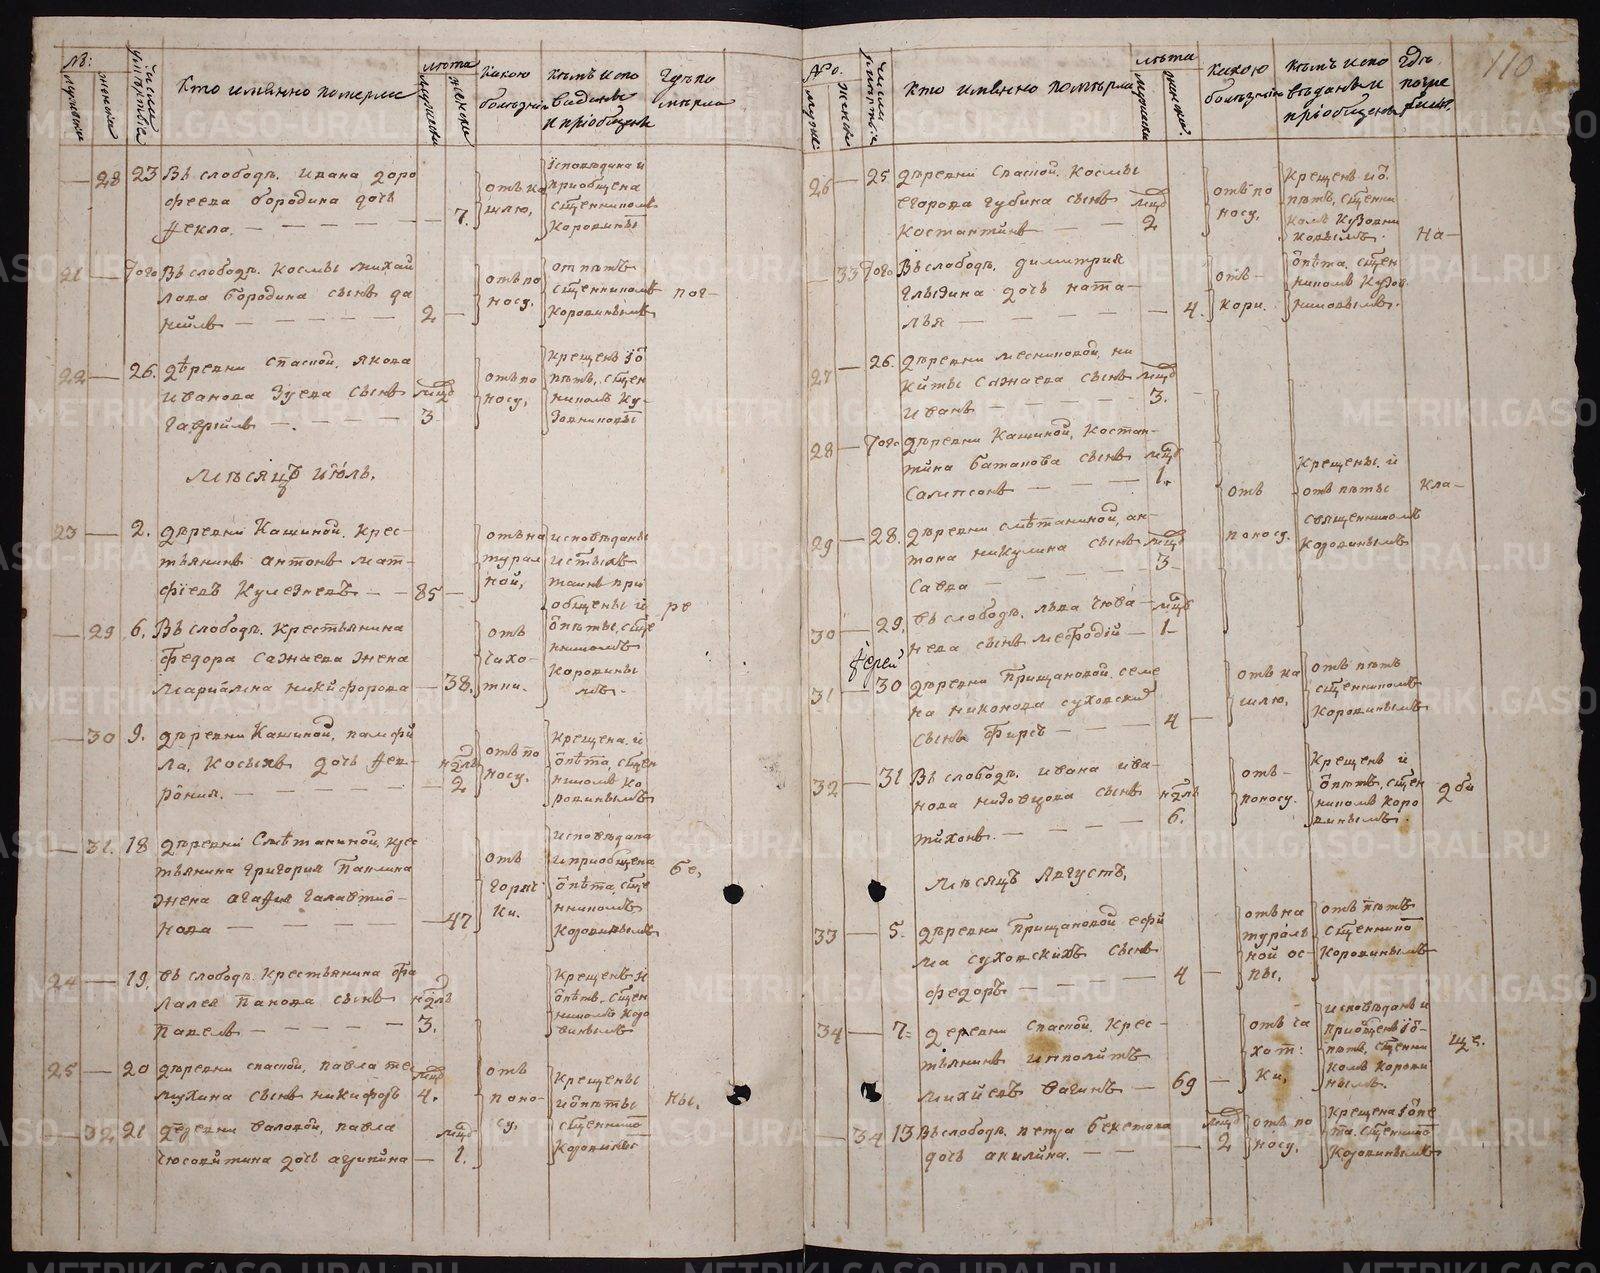 110
№:
мужска
женска
числа умертвіе
Кто имянно померли
лѣта
мужски
женски
какою болѣзнію
кѣмъ испо
вѣданы
и пріобщены
Гдѣ по
28 23 Въ слободѣ. Ивана доро
феева бородина дочь
Ѳекла. — 7.
отъ ка
шлю,
исповѣдана и
приобщена
сщенникомъ
Коровинымъ
21 — того Въ слободѣ. Космы михай
лова бородина сынъ да
нійлъ — 2 —
отъ по
носу,
отпѣтъ
сщенникомъ
Коровинымъ
пог—
22 — 26. деревни Спаской. Якова
Иванова Зуева сынъ мцъ
Гавріилъ — 3
отъ по
носу,
крещенъ и о
пѣтъ, сщен
никомъ Ку
Мѣсяцъ Июль.
23 — 2. деревни Кашиной, крес-
тьянинъ антонъ мат-
фіевъ — 85 —
отъ на
турал
ной,
исповѣданы
и
таинъ при
общены и
опѣты, сще
нникомъ
Коровины
мъ.
ре
— 29 6. Въ слободѣ. крестьянина
Федора Сажаева жена
Мариамна никифорова — 38.
отъ
чахо-
тки.
— 30 9. деревни Кашиной, памфи
ла, Косыхъ дочь Фев-
рониа. — ндль 2
отъ по
носу.
крещена и
опѣта, сщен
никомъ Ко
ровинымъ
— 31. 18 деревни Смѣтаниной, крес
тьянина григориа Папкина
жена агафиа галактио-
нова — 47
отъ
горяч
ки.
исповѣдана
и приобщена
опѣта, сще
нникомъ
Коровинымъ
бе,
24 — 19. въ слободѣ. крестьянина фа
лалея панова сынъ ндль
Павелъ — 3.
крещенъ и
опѣтъ. сщен
никомъ Коро
винымъ
25 — 20 деревни спаской, павла те
мухина сынъ никифоръ мцъ 4.
отъ
поно-
су.
крещены
и опѣты
сщеннико
Коровины
ны.
— 32 21 деревни валовой, павла
дочь агрипина — мцъ 1.
№.
мужс:
женски
числа умертвіе
Кто имянно померли
лѣта
мужески
женска.
какою
болѣзнію
кѣмъ испо
вѣданы и
пріобщены
Гдѣ
погре
бены.
26 — 25 деревни Спаской. Космы
Егорова губина сынъ мцъ
Костантинъ — 2
отъ по
носу.
крещенъ и о
пѣтъ, сщенни
комъ Кузовни
ковымъ.
На—
— 33 того Въ слободѣ. Димитриа
глызина дочь ната-
лья — 4.
отъ
кори.
опѣта. сщен
никомъ Кузов
никовымъ.
27 — 26. деревни Месниковой, ни
киты Сажаева сынъ мцъ
Иванъ — 3.
28 — того деревни Кашиной, Костан-
тина батакова сынъ мцъ
Сампсонъ — 1.
отъ
поносу.
крещены и
отъ пѣты
священникомъ
Коровинымъ
кла—
29 — 28. деревни смѣтаниной, ан-
тона никулина сынъ мцъ
Савва — 3
30 — 29. въ слободѣ. льва чюва— мцъ
нева сынъ мефодій — 1—
Ѳерей
31 — 30 деревни Прищановой. семе
на никонова суховских
сынъ Фирсъ — 4 —
отъ ка
шлю,
отъ пѣтъ
сщенникомъ
Коровинымъ
32 — 31 Въ слободѣ. Ивана ива-
нова низовцова сынъ ндль
тихонъ. — 6.
отъ
поносу.
крещенъ и
опѣтъ, сщен
никомъ Коро
винымъ.
Мѣсяцъ Августъ.
33 — 5. деревни Прищановой ефи
ма суховскихъ сынъ
федоръ — 4 —
отъ на
тураль
ной ос-
пы,
отъ пѣтъ
сщеннико
Коровинымъ
34 — 7. деревни Спаской, Крес-
тьянинъ ипполитъ
михиевъ вагинъ — 69 —
отъ ча
хот:
ки,
исповѣданъ и
приобщенъ и о-
пѣтъ, сщенни
комъ Корови
нымъ.
ще.
— 34 13 Въ слободѣ. петра бекетова
дочь акилина. — мцъ 2
отъ по
носу,
крещена и опе
та. сщеннико
Коровинымъ